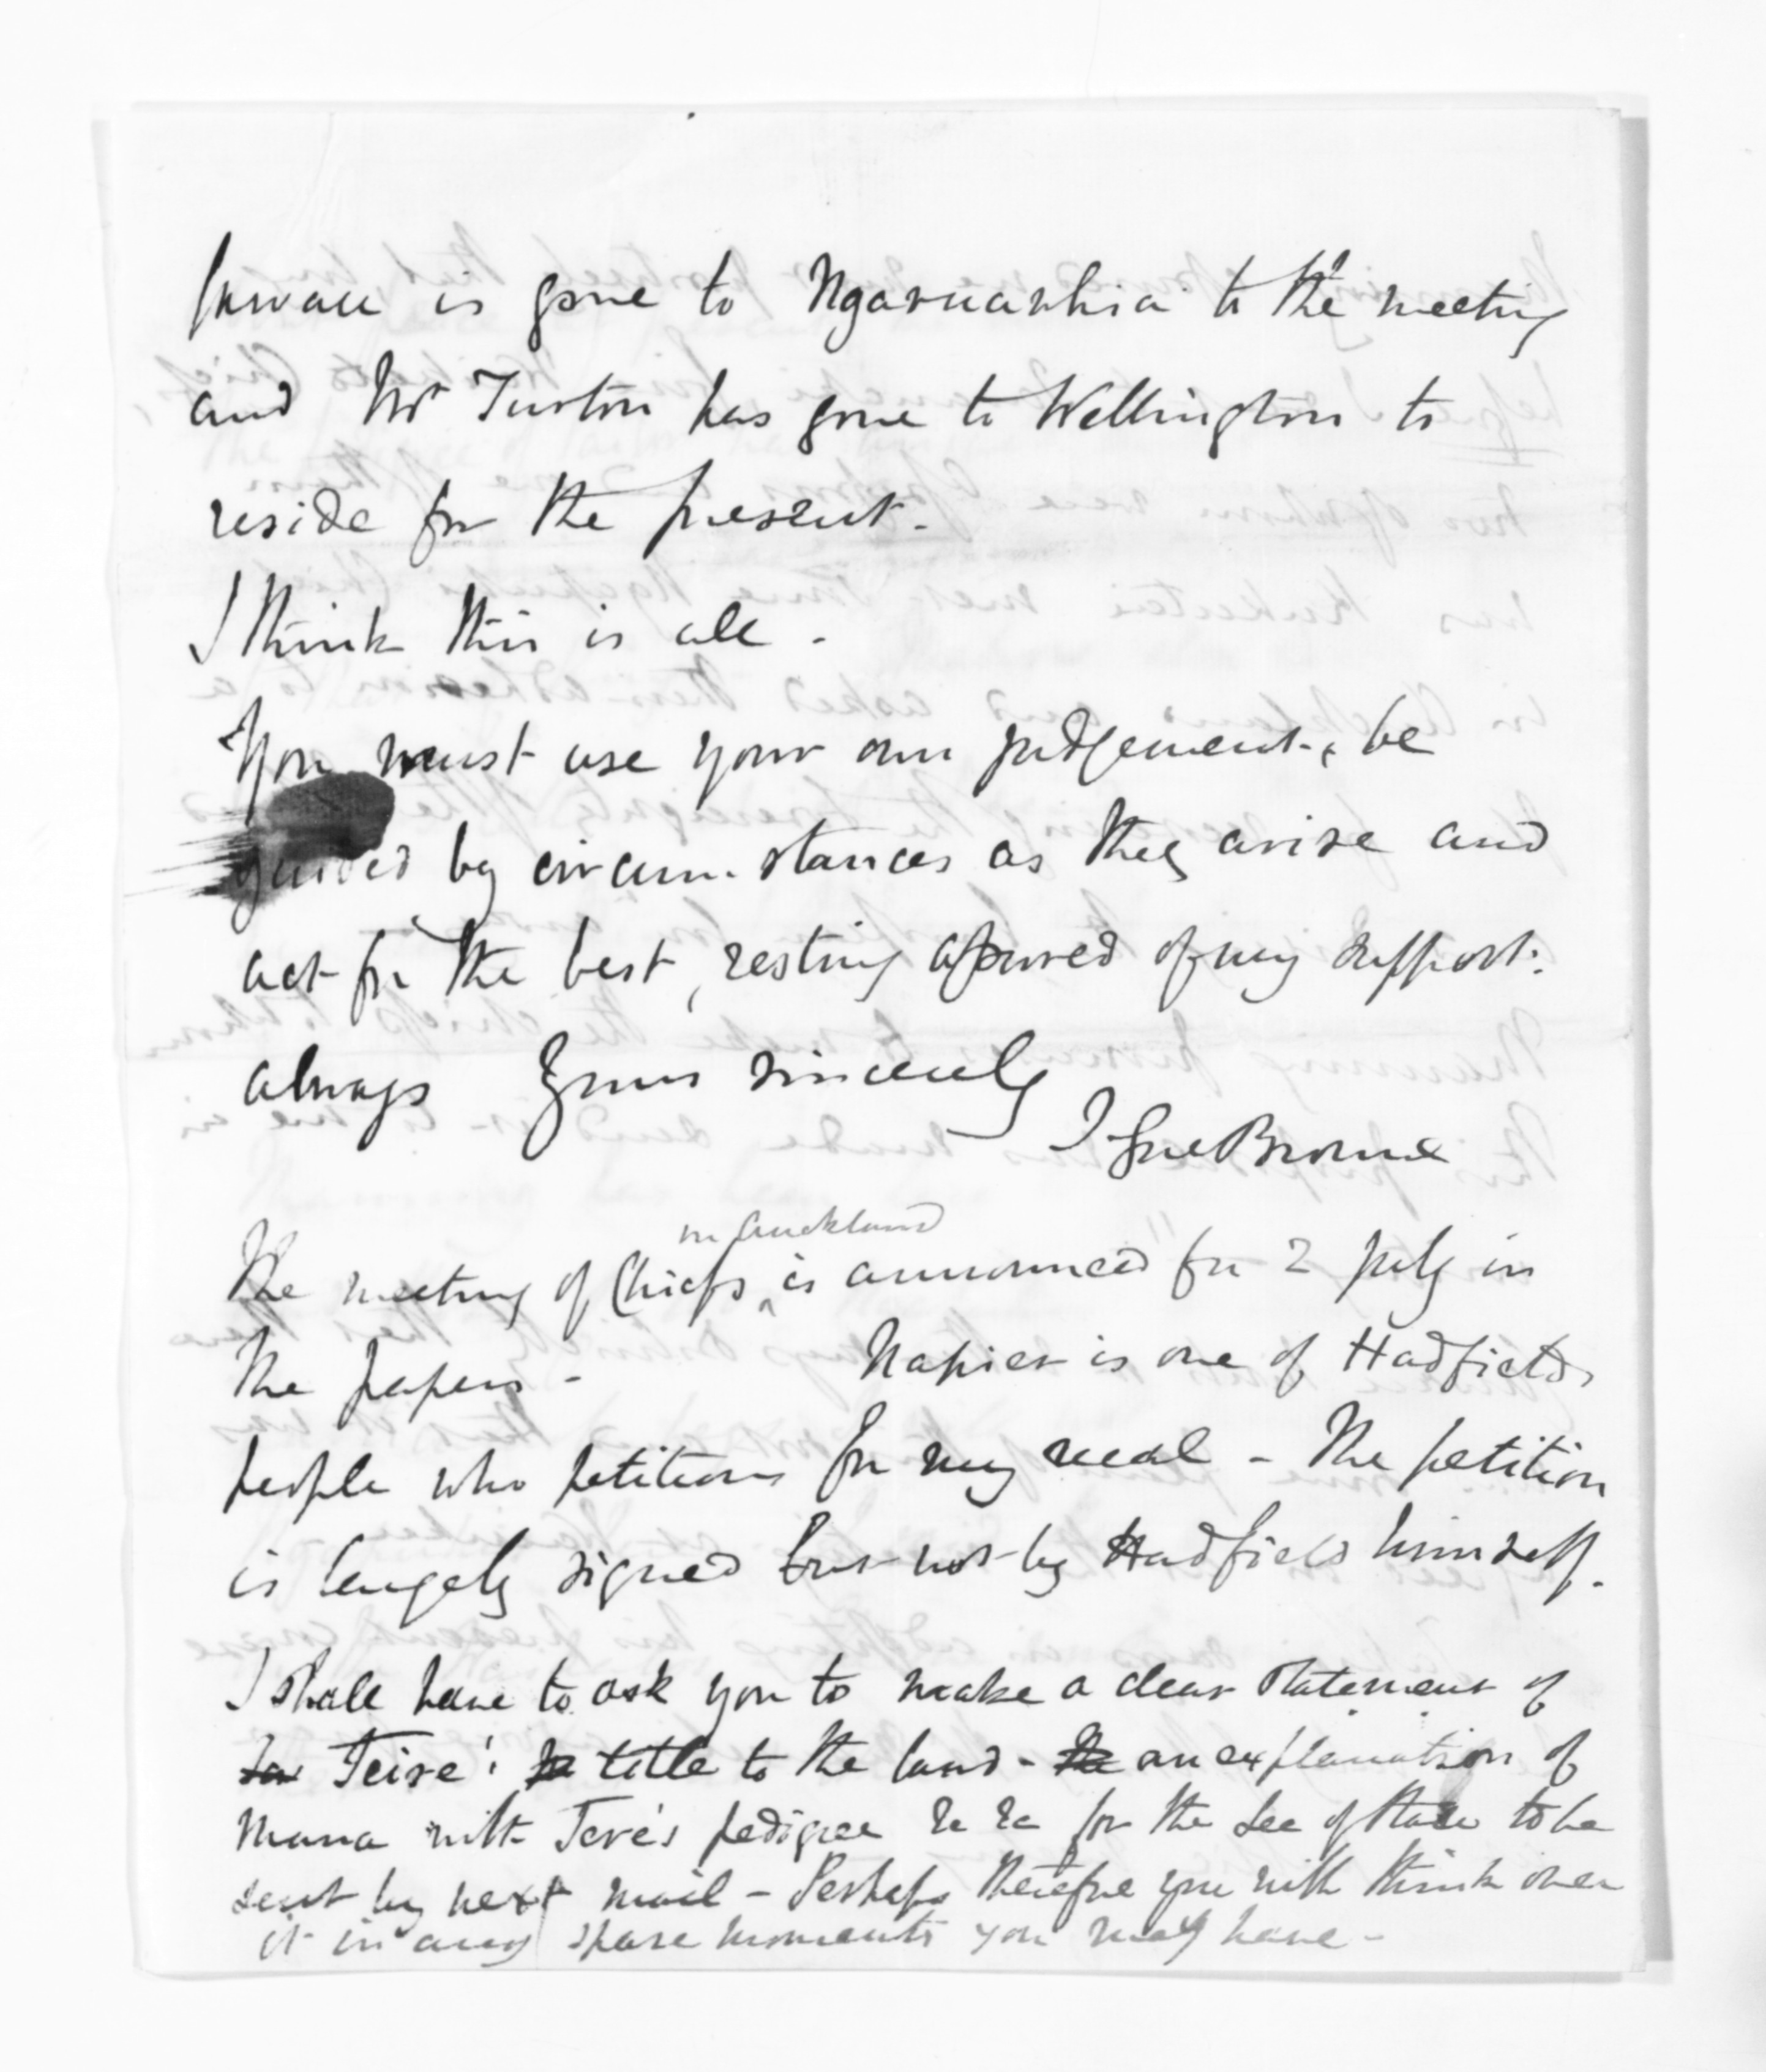 is gone to Ngaruawhia to the meeting
and Mr Turton has gone to Wellington to
reside for the present.
I think this is all.
You must use your own judgement, be
guided by circumstances as they arise and
act for the best, resting assured of my support.
always Yours sincerely
T Gore Browne
in Auckland
The meeting of Chiefs ^ is announced for 2 July in
the papers - Napier is one of Hadfields
people who petitions for my recal - The petition
is largely signed but not by Hadfield himself.
I shall have to ask you to make a clear statement of
Teira's title to the land - an explanation of
mana with pedigree &c &c for the Sec of State to be
sent by next mail - Perhaps therefore you will think over
it in any spare moments you may have -